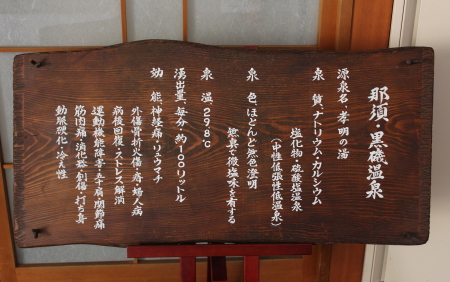 那須・黒磯温泉
源泉名・孝明の湯
泉質、ナトリウム・カルシウム
塩化物・硫酸塩温泉
(中性低張性低温泉)
泉色、ほとんど無色澄明
無臭で微塩味を有する
泉温、29.8℃
湧出量、毎分・100リットル
効能、神経痛・リュウマチ
外傷骨折火傷・痔・婦人病
病後回復・ストレス解消
運動機能障害・五十肩・関節痛
筋肉痛・消化器・創傷・打ち身
動脈硬化・冷え性